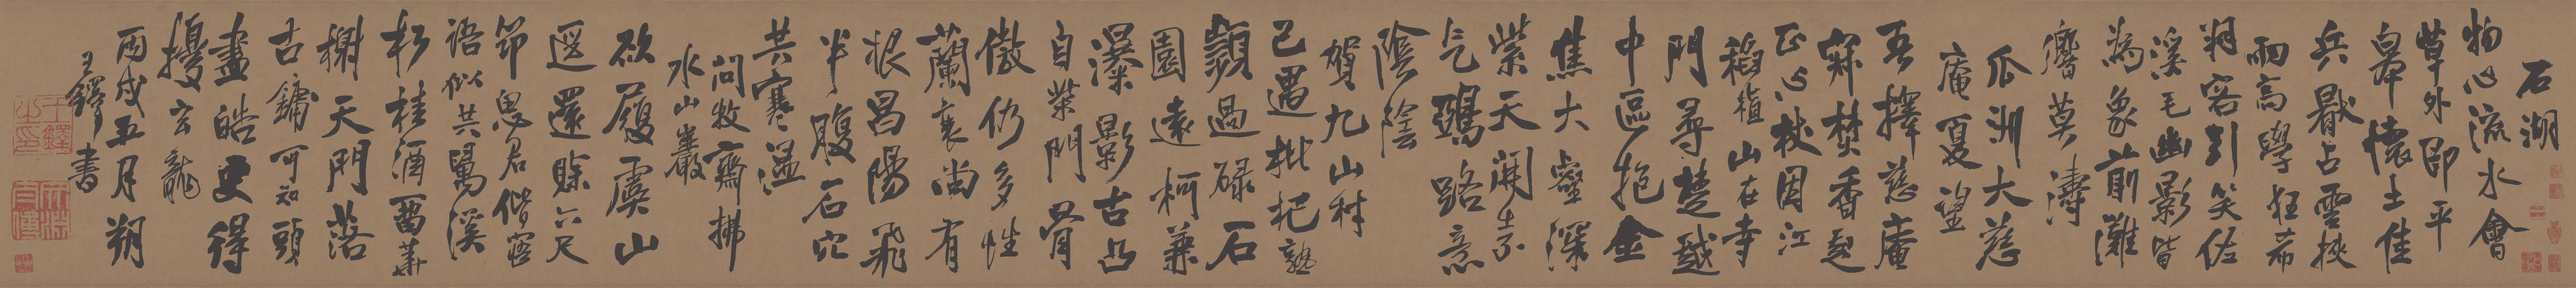 石湖
物心流水會
草外即平
皋懷土佳
兵厭占雲挾
雨高學狂希
翔客到笑佐
溪毛幽影皆
為象前灘
響莫濤
瓜洲大慈
庵夏望
吾擇慈庵
寐焚香起
正心杖固江
稻植山在寺
門尋楚越
中區抱金
焦大壑深
紫天開素
氣鷄路意
陰陰
賀九山村
已遇枇杷熟
顥過碌石
園遠柯兼
瀑影古凸
自柴門骨
傲仍多性
蘭衰尚有
根昌陽飛
半腹石穴
共寒溫
問牧齋拂
水山巖
欲履虞山
遐還賒六尺
節思君偕密
語似共置溪
杉桂酒留華
榭天門落
古鏞可知頭
盡皓史得
擾玄龍
丙戌五月朔
王鐸書